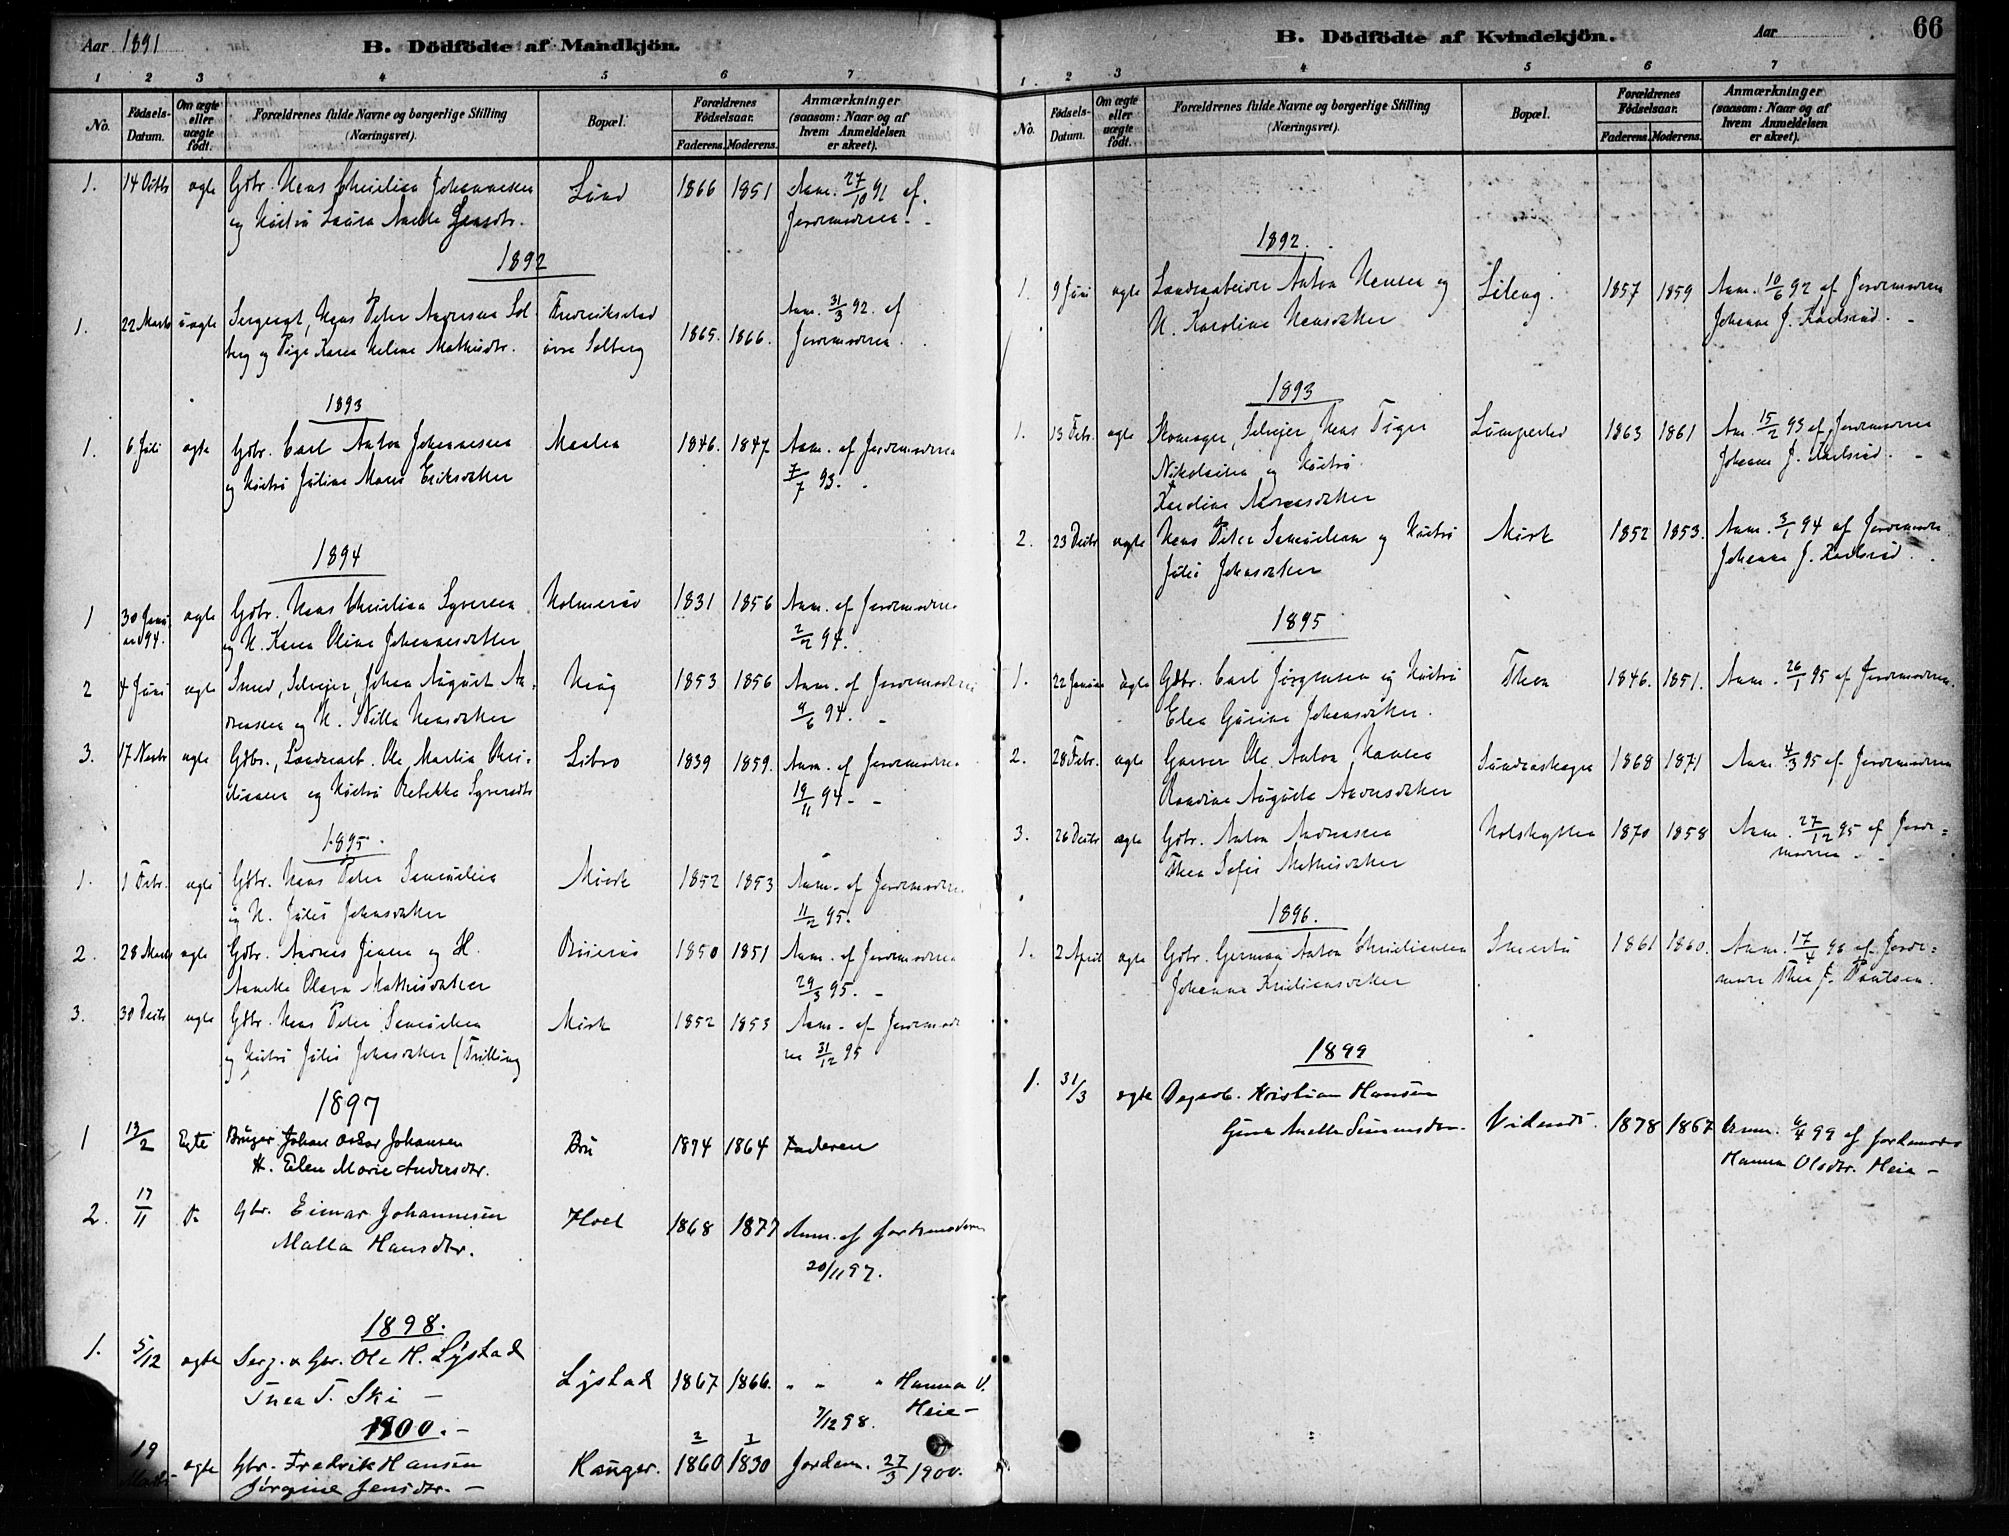 Aar 1891
B. Dödfödte af Mandkjön.
1 2 3 4 5 6 7
No. Födsels-Datum. Om ægte eller uægte födt. Forældrenes fulde Navne og borgerlige Stilling (Næringsvei). Bopæl. Forældrenes Födselsaar. Faderens. Moderens. Anmærkninger (saasom: Naar og af hvem Anmeldelsen er skeet).
1. 14 Octbr ægte Gdbr. Hans Christian Johannesen Lund 1866 1851 Anm. 27/10 91 af
og Hustru Laura Jordemoderen.
1892
1. 22 Marts uægte Sergeant, Hans Peter Andersen Sol- Fredrikstad 1865. 1866. Anm. 31/3 92. af
berg og Pige Karen Heline Mathisdtr. övre Solberg Jordemoderen.
1893
1. 6 Juli ægte Gdbr. Carl Anton Johannesen 1846. 1847 Anm. af Jordemoderen
og Hustru Juline Marie Eriksdatter 7/7 93.
1894
1 30 Janu- ægte Gdbr. Hans Christian Syversen 1831 1856 Anm. af Jordemoderen
ar 94. og H. Karen Oline Johannesdatter 2/2 94.
2 4 Juni ægte Smed, Selveier, Johan August An- Haug 1853 1856 Anm. af Jordemoderen
dersen og H. Hansdatter 9/6 94.
3. 17 Novbr ægte Gdbr., Landearb. Ole Martin Chri- 1839 1859. Anm. af Jordemoderen
stiansen og Hustru Rebekka Syversdtr 19/11 94
1895.
1. 1 Febr. ægte Gdbr. Hans Peter Samuelsen Mörk 1852 1853 Anm. af Jordemoderen
og H. Julie Johansdatter 11/2 95.
2. 28 Marts ægte Gdbr. Andreas Jensen og H. 1850 1851 Anm. af Jordemoderen
Annette Olava Mathisdatter 29/3 95.
3. 30 Decbr ægte Gdbr. Hans Peter Samuelsen Mörk 1852 1853 Anm. af Jordemode
og Hustru Julie Johansdatter (Tvilling ren 31/12 95
1897
1 13/2 Egte Bruger Johan Oskar Johansen Bru 1874 1864 Faderen
H. Elen Marie Andersdtr.
2. 17/11 Do Gbr. Eimar Johannesen Hoel 1868 1877 Anm. af Jordemoderen
Malla Hansdtr. 20/11 97.
1898.
1. 5/12 ægte Serg. & Gbr. Ole H. Lystad Lystad 1867 1866. " " " Hanna O.
Thea T. Ski 7/12 98. Heie
1900.
19 Marts ægte Gbr. Fredrik Hansen Hauger. 1860 1830 Jordem. 27/3 1900.
Jörgine Jensdtr.
B. Dödfödte af Kvindekjön.
Aar 66
1 2 3 4 5 6 7
No. Födsels-Datum. Om ægte eller uægte födt. Forældrenes fulde Navne og borgerlige Stilling (Næringsvei). Bopæl. Forældrenes Födselsaar. Faderens. Moderens. Anmærkninger (saasom: Naar og af hvem Anmeldelsen er skeet).
1892.
1. 9 Juni ægte Landearbeider Anton Hansen og 1857 1859 Anm. 10/6 92 af Jordemoderen
H. Karoline Hansdatter Johanne J. Karlsrud.
1893
1. 13 Febr. ægte Skomager, Selveier, Hans 1863 1861 Anm. 15/2 93 af Jordemoderen
Nikolaisen og Hustru Johanne J. Karlsrud.
Karoline Andreasdatter
2. 23 Decbr ægte Hans Peter Samuelsen og Hustru Mörk 1852 1853. Anm. 3/1 94 af Jordemoder
Julie Johansdatter Johanne J. Karlsrud.
1895
1. 22 Januar ægte Gdbr. Carl Jörgensen og Hustru Thon 1846. 1851. Anm. 26/1 95 af Jordemoderen.
Elen Gurine Johansdatter.
2. 28 Febr. ægte Garver Ole Anton Hansen 1868 1871 Anm. 4/3 95 af Jordemoderen
Augusta Andersdatter
3. 26 Decbr ægte Gdbr. Anton Andreassen 1870 1858 Anm. 27/12 95 af Jorde-
Thea Sofie Mathisdatter moderen
1896.
1. 2 April ægte Gdbr. Herman Anton Christiansen 1861 1860. Anm. 17/4 96 af Jorde-
Johanne Kristiansdatter moder Thea J. Paulsen.
1899
1. 31/3 ægte Dagarb. Kristian Hansen
Gina Anette Simensdtr. 1878 1867 Anm. 6/4 99 af Jordemoder
Hanna Olsdtr. Heie